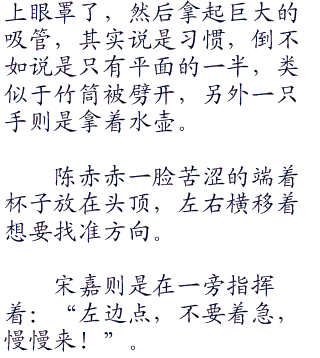 上眼罩了，然后拿起巨大的
吸管，其实说是习惯，倒不
如说是只有平面的一半，类
似于竹筒被劈开，另外一只
手则是拿着水壶。
陈赤赤一脸苦涩的端着
杯子放在头顶，左右横移着
想要找准方向。
宋嘉则是在一旁指挥
着：“左边点，不要着急，
慢慢来！”。